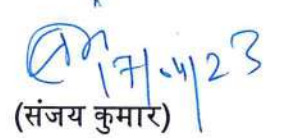 17/04/23
(संजय कुमार)